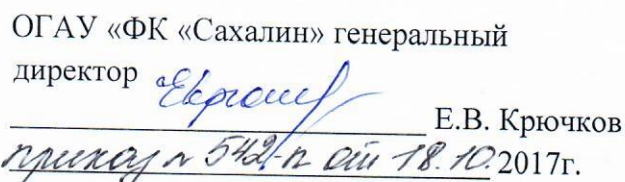 ОГАУ «ФК «Сахалин» генеральный
директор
Е.В. Крючков
приказ № 542-п от 18.10.2017г.